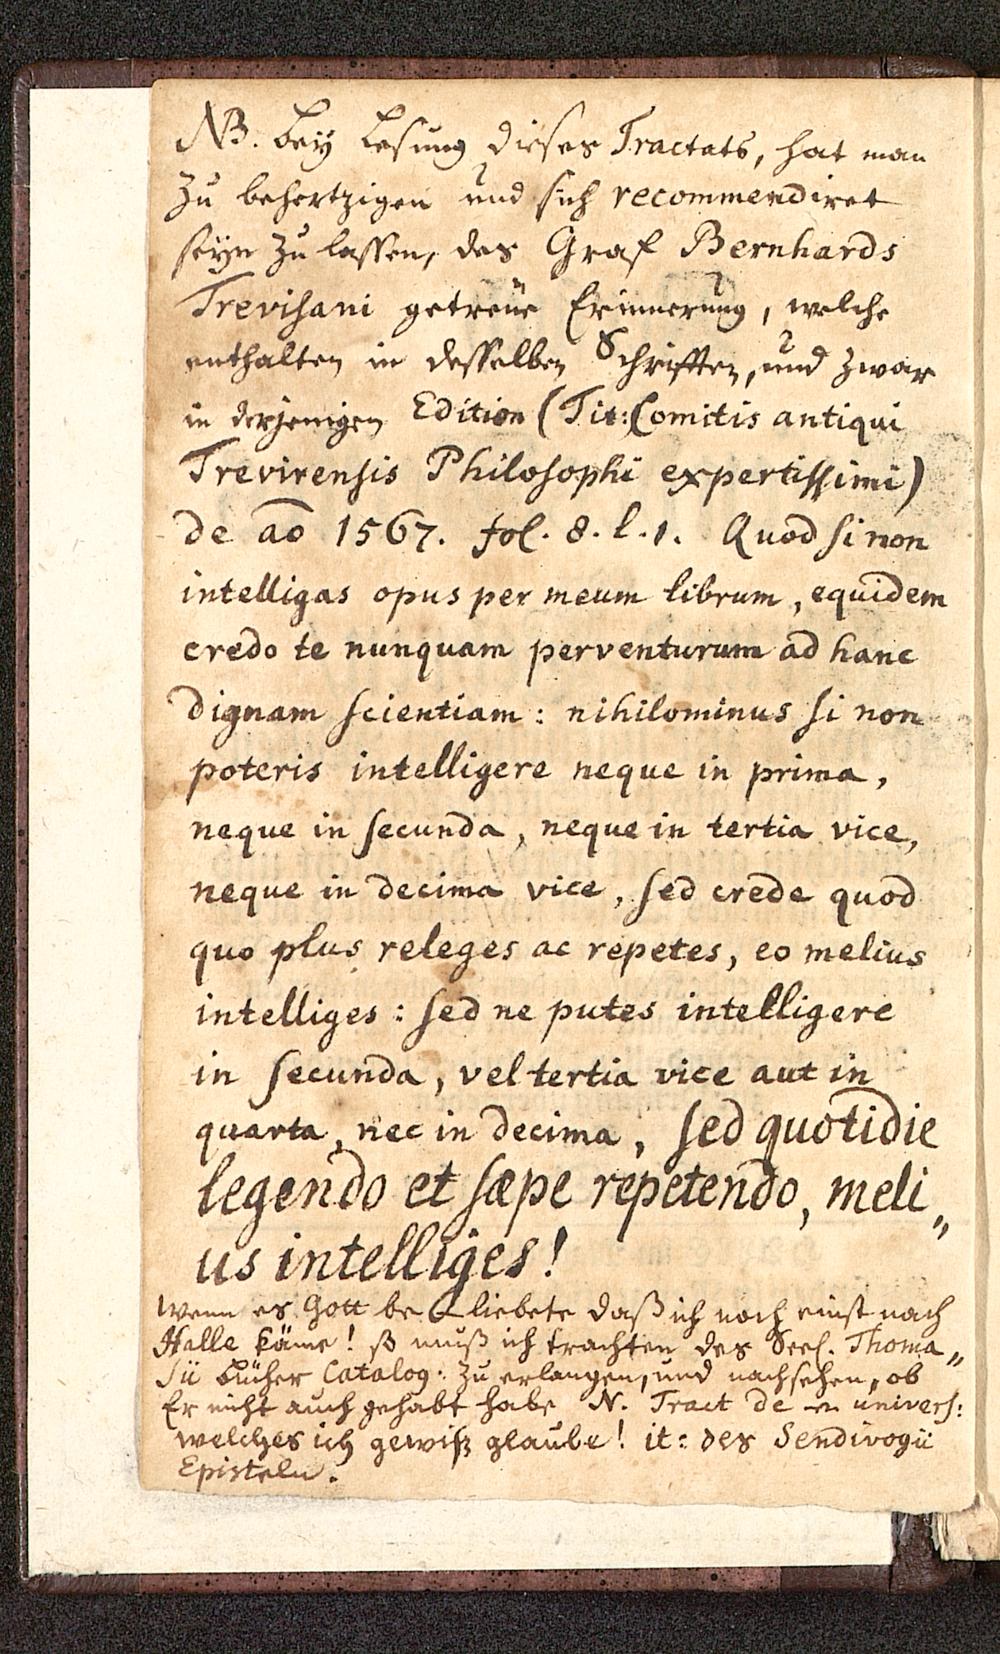 NB. Bey Lesung dieses Tractats, hat man
zu behertzigen und sich recommendiret
seyn zu lassen, des Graf Bernhards
Trevisani getreue Erinnerung, welche
enthalten in desselben Schrifften, und zwar
in derjenigen Edition (Tit: Comitis antiqui
Trevirensis Philosophi expertissimi)
de ao 1567. fol. 8. l. 1. Quod si non
intelligas opus per meum librum, equidem
credo te nunquam perventurum ad hanc
dignam scientiam: nihilominus si non
poteris intelligere neque in prima,
neque in secunda, neque in tertia vice,
neque in decima vice, sed crede quod
quo plus releges ac repetes, eo melius
intelliges: sed ne putes intelligere
in secunda, vel tertia vice aut in
quarta, nec in decima, sed quotidie
legendo et sæpe repetendo, meli„
us intelliges!
Wenn es Gott beliebete daß ich noch einst nach
Halle käme! so muß ich trachten des Seel. Thoma„
sii Bücher Catalog: zu erlangen, und nachsehen, ob
Er nicht auch gehabt habe N. Tract de univers:
welches ich gewiß glaube! it: des Sendivogii
Episteln.